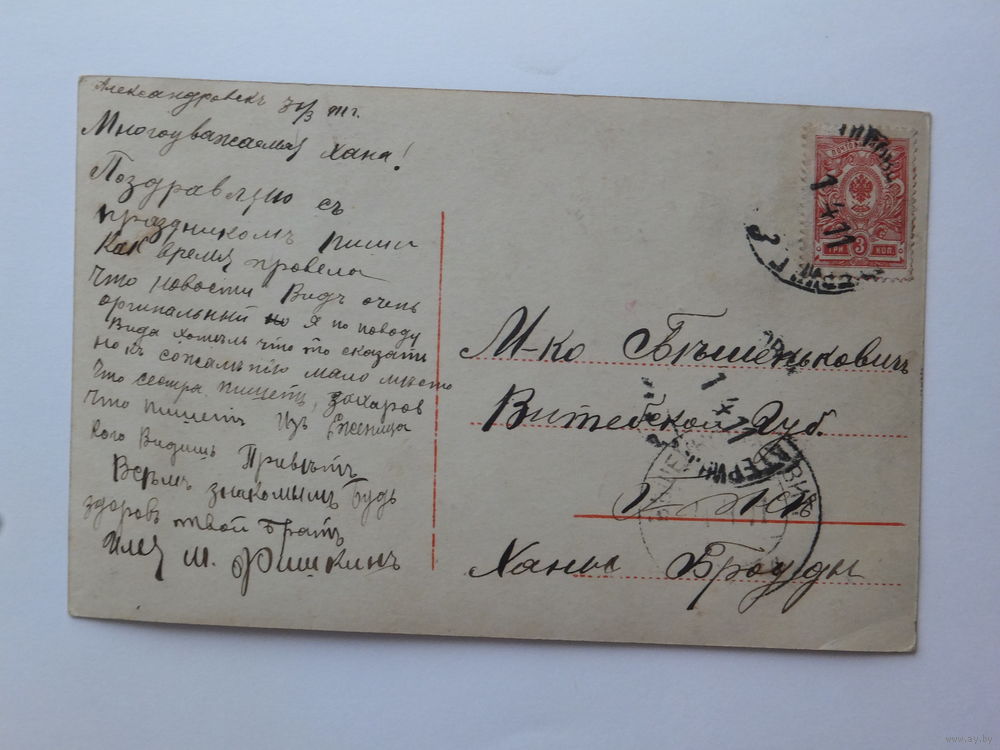 Александровскъ 31/3 11 г.
Многоуважаемая Хана!
Поздравляю съ
праздникомъ пиши
Как время провела
Что новости Видъ очень
оргинальный но я по поводу
Вида хотълъ что то сказать
но къ сожалънию мало мъсто
Что сестра пишетъ, захаров
Что пишетъ Изъ
Кого Видишь Привътъ
Всъмъ знакомымъ Будь
здоровъ твой братъ
М. Фишкинъ
М-ко Бъшенковичъ
Витебской Губ.
Ханы Броуды
1 4 11
ТРИ 3 КОП.
www.ay.by